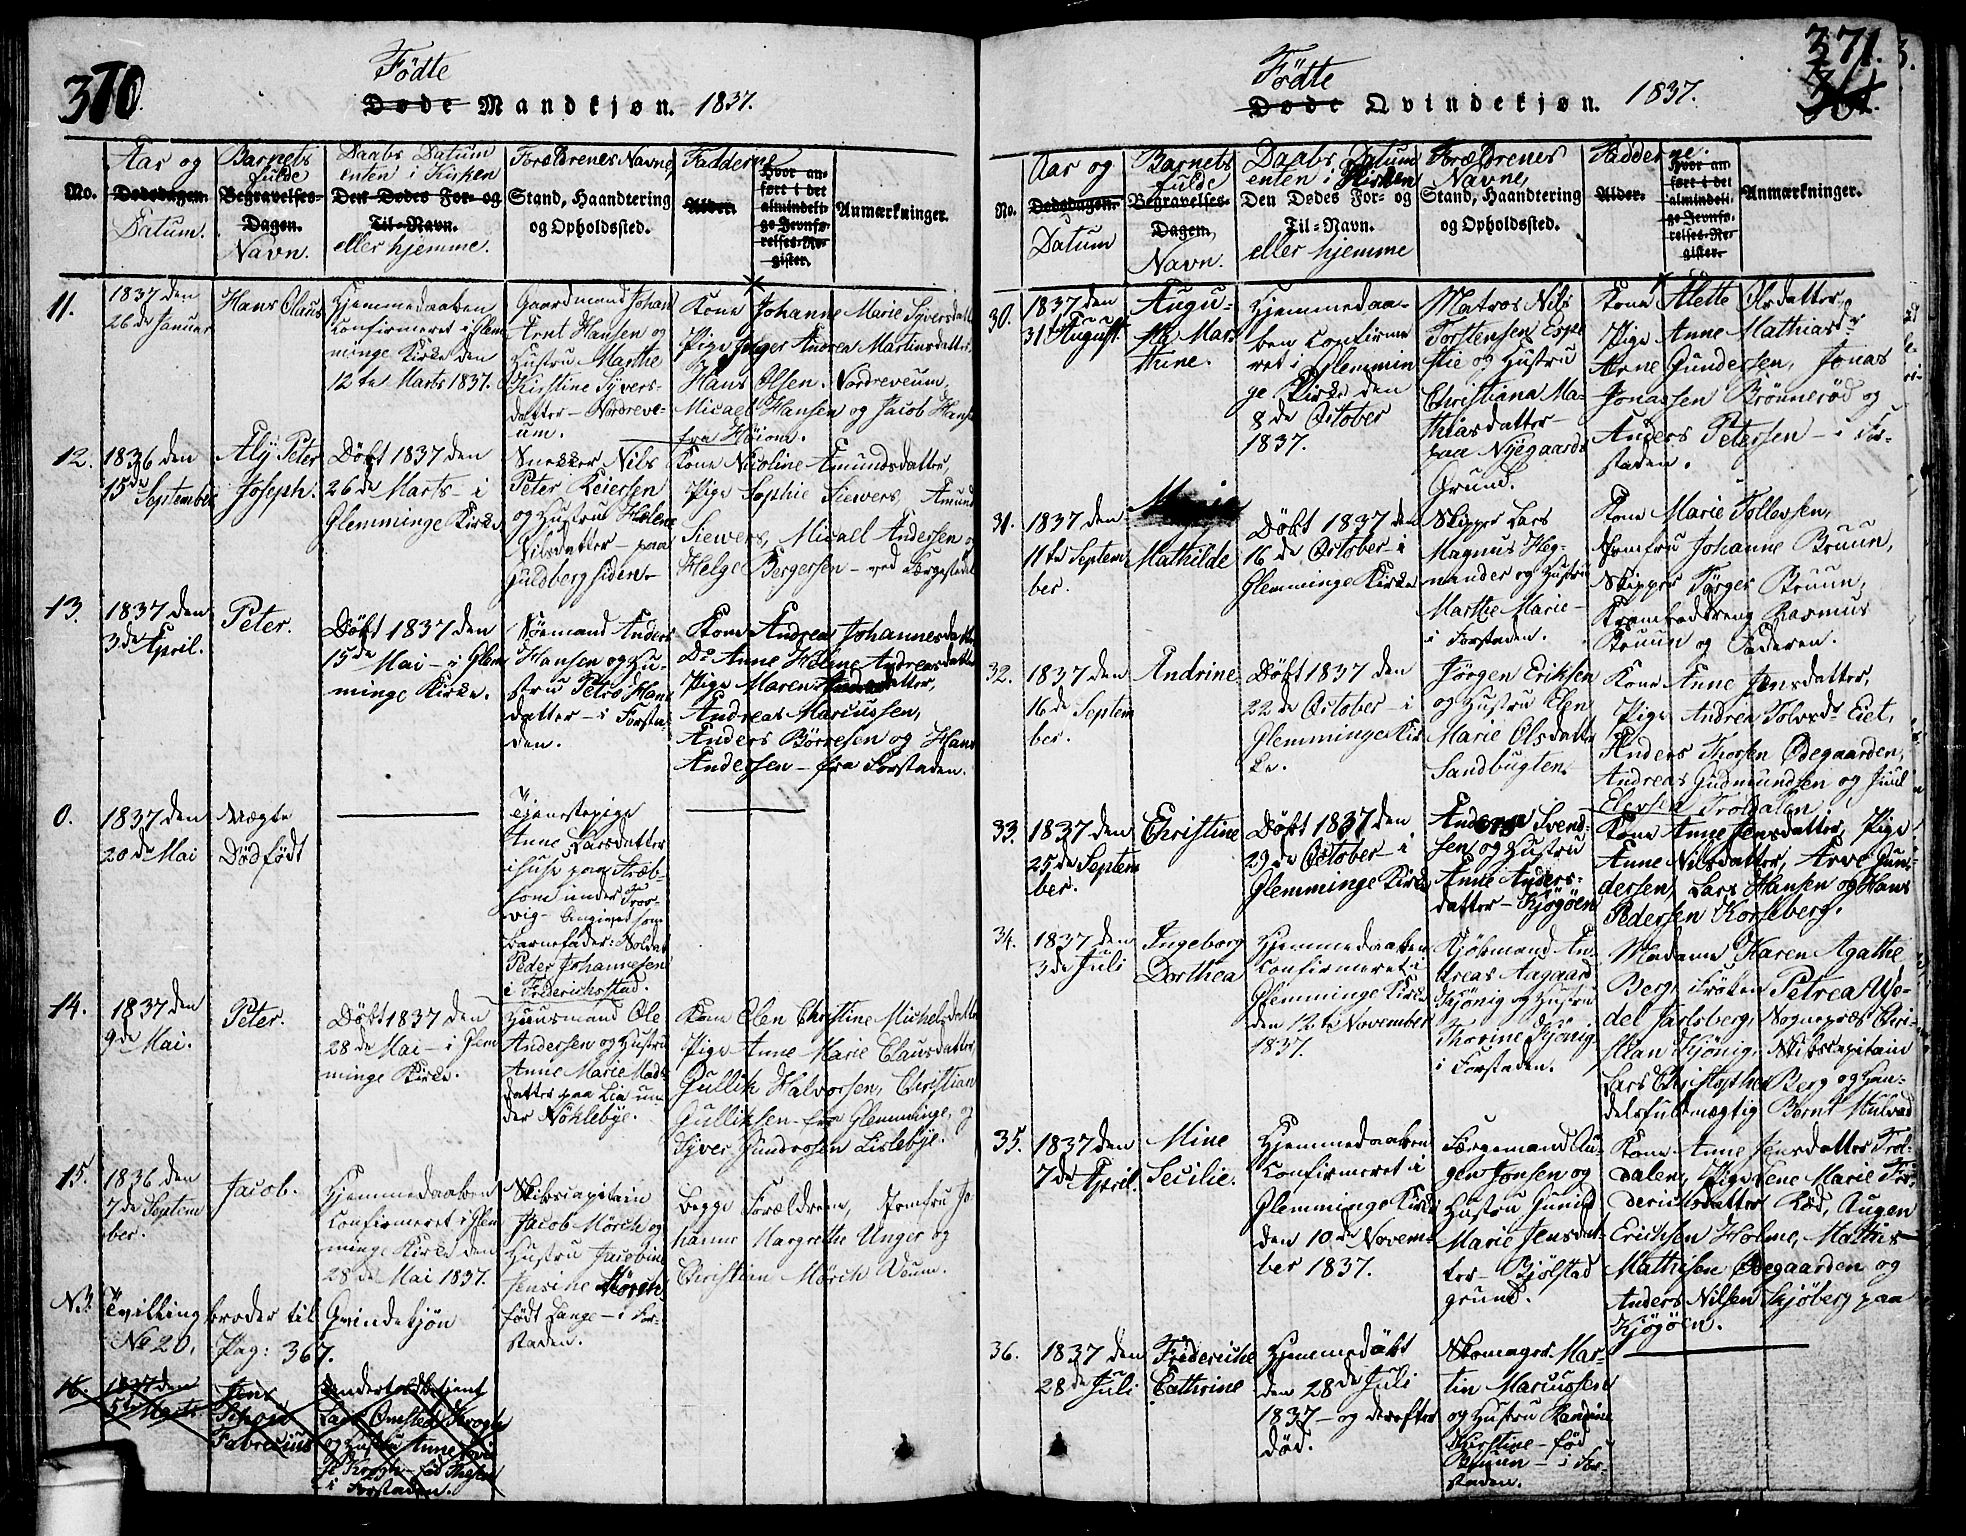 370.
Födte
Døde Mandkjøn. 1837.
No.
Aar og
Dødsdagen.
Datum.
Barnets
fulde
Begravelses-
Dagen.
Navn.
Daabs Datum
enten i Kirken
Den Dødes For- og
Til-Navn.
eller hjemme.
Forældrenes Navne,
Stand, Haandtering
og Opholdssted.
Fadderne
Alder.
Hvor an-
ført i det
almindeli-
ge Jevnfø-
relses-Re-
gister.
Anmærkninger.
11.
1837 den
26de Januar
Hans Olaus
Hjemmedaaben
Confirmeret i Glem
minge Kirke den
12te Marts 1837.
Gaardmand Johan
Arnt Hansen og
Hustru Marthe
Kirstine Syvers-
datter - Nordreve-
um.
Kone Johanne Marie Syversdatt
Pige Inger Andrea Martinsdatter,
Hans Olsen Nordreveum,
Micael Hansen og Jacob Hanse
fra Høiom.
12.
1836 den
15de September
Aly Peter
Joseph.
Døbt 1837 den
26de Marts - i
Glemminge Kirke
Snekker Nils
Peter Reiersen
og Hustru Helene
Nilsdatter - paa
Guldbergsiden -
Kone Nicoline Amundsdatter,
Pige Sophie Siewers, Amund
Siewers, Micael Andersen og
Helge Bergersen - ved Færgestedet
13.
1837 den
3de April.
Peter.
Døbt 1837 den
15de Mai - i Glem
minge Kirke.
Sømand Anders
Hansen og Hu-
stru Petro Hans
datter - i Forsta-
den.
Kone Andrea Johannesdatter
Do Anne Heline Andreasdatter
Pige Maren datter,
Andreas Marcussen,
Anders Börresen og Hans
Andersen - fra Forstaden.
0.
1837 den
20de Mai
Uægte
Dødfødt
Tjenestepige
Anne Larsdatter
i huse paa Stræb-
som under Tros-
vig - Angivet som
Barnefader: Soldat
Peder Johannesen
i Frederichsstad.
14.
1837 den
9de Mai.
Peter.
Døbt 1837 den
28de Mai - i Glem
minge Kirke.
Huusmand Ole
Andersen og Hustru
Anne Marie Mads
datter paa Lia un-
der Nöklebye.
Kone Olen Christine Michelsdatter
Pige Anne Marie Clausdatter,
Gullik Halvorsen, Christian
Gulliksen fra Glemminge, og
Syver Gundrosen Lislebye.
15.
1836 den
7de Septem
ber.
Jacob.
Hjemmedaaben
Confirmeret i Glem
minge Kirke den
28de Mai 1837.
Skibscapitain
Jacob Mörch og
Hustru Jacobine
Jensine Mörch
født Lange - i For-
staden.
Begge Forældrene, Jomfru Jo
hanne Margrethe Unger og
Christian Mörch Veum.
N3.
Tvillingbroder til Qvindekjön
No 20, Pag: 367.
16.
1837 den
5te Marts
Jens
Schou
Fabrecius
Undertoldbetjent
Lars Omsted Krogh
og Hustru Anne
Krogh - fød
i Forstaden.
371.
361.
Födte
Døde Qvindekjøn. 1837.
No.
Aar og
Dødsdagen.
Datum
Barnets
fulde
Begravelses-
Dagen.
Navn.
Daabs Datum
enten i Kirken
Den Dødes For- og
Til-Navn.
eller hjemme
Forældrenes
Navne,
Stand, Haandtering
og Opholdssted.
Fadderne.
Alder.
Hvor an-
ført i det
almindeli-
ge Jevnfø-
relses-Re-
gister.
Anmærkninger.
30.
1837 den
31te August.
Augu-
sta Mar
thine.
Hjemmedaa-
ben Confirme
ret i Glemmin
ge Kirke den
8de October
1837.
Matros Nils
Torstensen Espe
stie og Hustru
Christiana Ma-
thiasdatter -
paa Nyegaards
Grund.
Kone Alette Olsdatter,
Pige Anne Mathiasdr
Arne Gundersen, Jonas
Jonassen Brönneröd og
Anders Petersen - i For-
staden.
31.
1837 den
11te Septem
ber.
Maria
Mathilde
Døbt 1837 den
16de October i
Glemminge Kirke
Skipper Lars
Magnus Heg-
nander og Hustru
Marthe Marie -
i Forstaden.
Kone Marie Tollevsen,
Jomfru Johanne Bruun,
Skipper Törger Bruun,
Krambodreng Rasmus
Bruun og Faderen.
32.
1837 den
16de Septem
ber.
Andrine
Døbt 1837 den
22de October - i
Glemminge Kir-
ke.
Jörgen Eriksen
og Hustru Elen
Marie Olsdatter
Sandbugten.
Kone Anne Jensdatter,
Pige Andrea Tolvsdr Eiet,
Anders Thorsen Ødegaarden,
Andreas Gudmundsen og Juul
Elevsen Troldalen.
33.
1837 den
25de Septem
ber.
Christine
Døbt 1837 den
29de October - i
Glemminge Kirke
Anders Svend-
sen og Hustru
Anne Anders-
datter - Kjøgöen
Kone Anne Jensdatter, Pige
Anne Nilsdatter, Arve Gun-
dersen, Lars Hansen og Hans
Pedersen Korseberg.
34.
1837 den
3de Juli
Ingeborg
Dorthea
Hjemmedaaben
Confirmeret i
Glemminge Kirke
den 12te November
1837.
Kjöbmand An-
dreas Aagaard
Kjönig og Hustru
Thorine Kjönig
i Forstaden.
Madame Karen Agathe
Berg, Fröken Petrea We-
del Jarlsberg, Sognepræst Chri-
stian Kjönig, Skibscapitain
Lars Christopher Berg og Han-
delsfuldmægtig Bernt Stulvad
35.
1837 den
7de April.
Mine
Secilie.
Hjemmedaaben
Confirmeret i
Glemminge Kirke
den 10de Novem-
ber 1837.
Færgemand Au-
gen Jonsen og
Hustru Gunild
Marie Jensdat-
ter - Bjölstad
grund.
Kone Anne Jensdatter Trol-
dalen, Pige Lene Marie Fre-
derichsdatter Röd, Augen
Erichsen Holme, Mathis
Mathisen Ødegaarden og
Anders Nilsen Kjöberg paa
Kjøgöen.
36.
1837 den
28de Juli
Frideriche
Cathrine
Hjemmedøbt
den 28de Juli
1837 - og derefter
død.
Skomager Mar-
tin Marcussen
og Hustru Randine
Kirstine - fød
Bruun - i For-
staden.